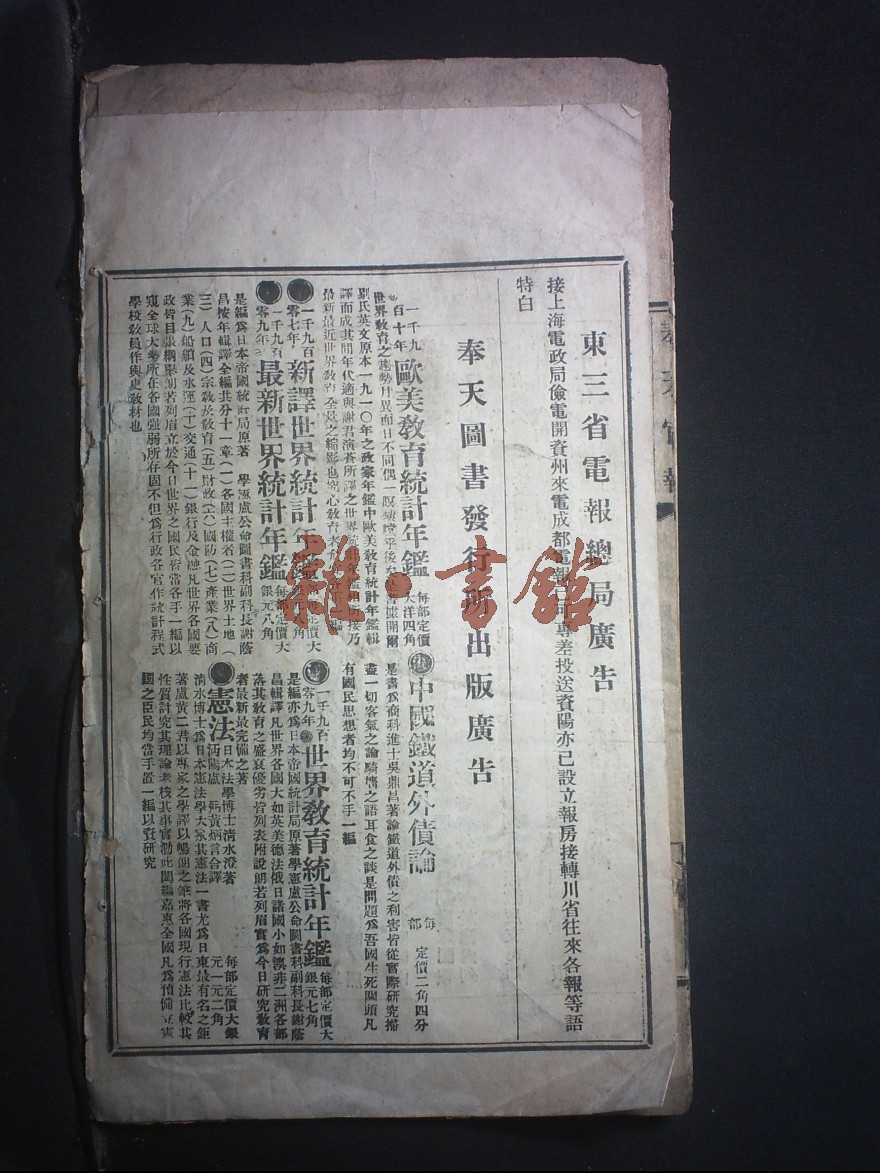 東三省電報總局廣告
接上海電政局儉電開資州來電成都電報已可專差投送資陽亦已設立報房接轉川省往來各報等語
特白
奉天圖書發行所出版廣告
一千九
百十年
歐美教育統計年鑑
每部定價
大洋四角
世界教育之趨勢月異而日不同偶一
開爾
氏英文原本一九一〇年之政家年鑑中歐美教育統計年鑑輯
譯而成其間年代適與謝君演蒼所譯之世界統計年鑑
接乃
最新最近世界教育
之縮影也
心教育者
中國鐵道外債論
每部
定價二角四分
是書爲商科進士吳鼎昌著論鐵道外債之利害皆從實際研究掃
盡一切客氣之論騎牆之語耳食之談是問題爲吾國生死關頭凡
有國民思想者均不可不手一編
一千九百
零七年
新譯世界統計年鑑
定價大
八角
一千九百
零九年
最新世界統計年鑑
每部定價大
銀元八角
是編爲日本帝國統計局原著 學憲盧公命圖書科副科長謝蔭
昌按年輯譯全編共分十一章(一)各國主權者(二)世界土地(
三)人口(四)宗教及教育(五)財政(六)國防(七)產業(八)商
業(九)船舶及水運(十)交通(十一)銀行及金融凡世界各國要
政皆目張綱舉朗若列眉立於今日世界之國民皆當各手一編以
窺全球大勢所在各國強弱所存固不但爲行政各官作統計程式
學校教員作輿史教材也
一千九百
零九年
世界教育統計年鑑
每部定價大
銀元七角
是編亦爲日本帝國統計局原著學憲盧公命圖書科副科長謝蔭
昌輯譯凡世界各國大如英美德法俄日諸國小如澳非二洲各部
落其教育之盛衰優劣皆列表附說朗若列眉實爲今日研究教育
者最新最完備之著
憲法
日本法學博士清水澄著
沔陽盧 弼黃炳言合譯
每部定價大銀
元一元二角
清水博士爲日本憲法學大家其憲法一書尤爲日東最有名之鉅
著盧黃二君以專家之學譯以暢朗之筆將各國現行憲法比較其
性質討究其理論考核其事實勒此閎編嘉惠全國凡爲預備立憲
國之臣民均當手置一編以資研究
雜·書館
奉天官報